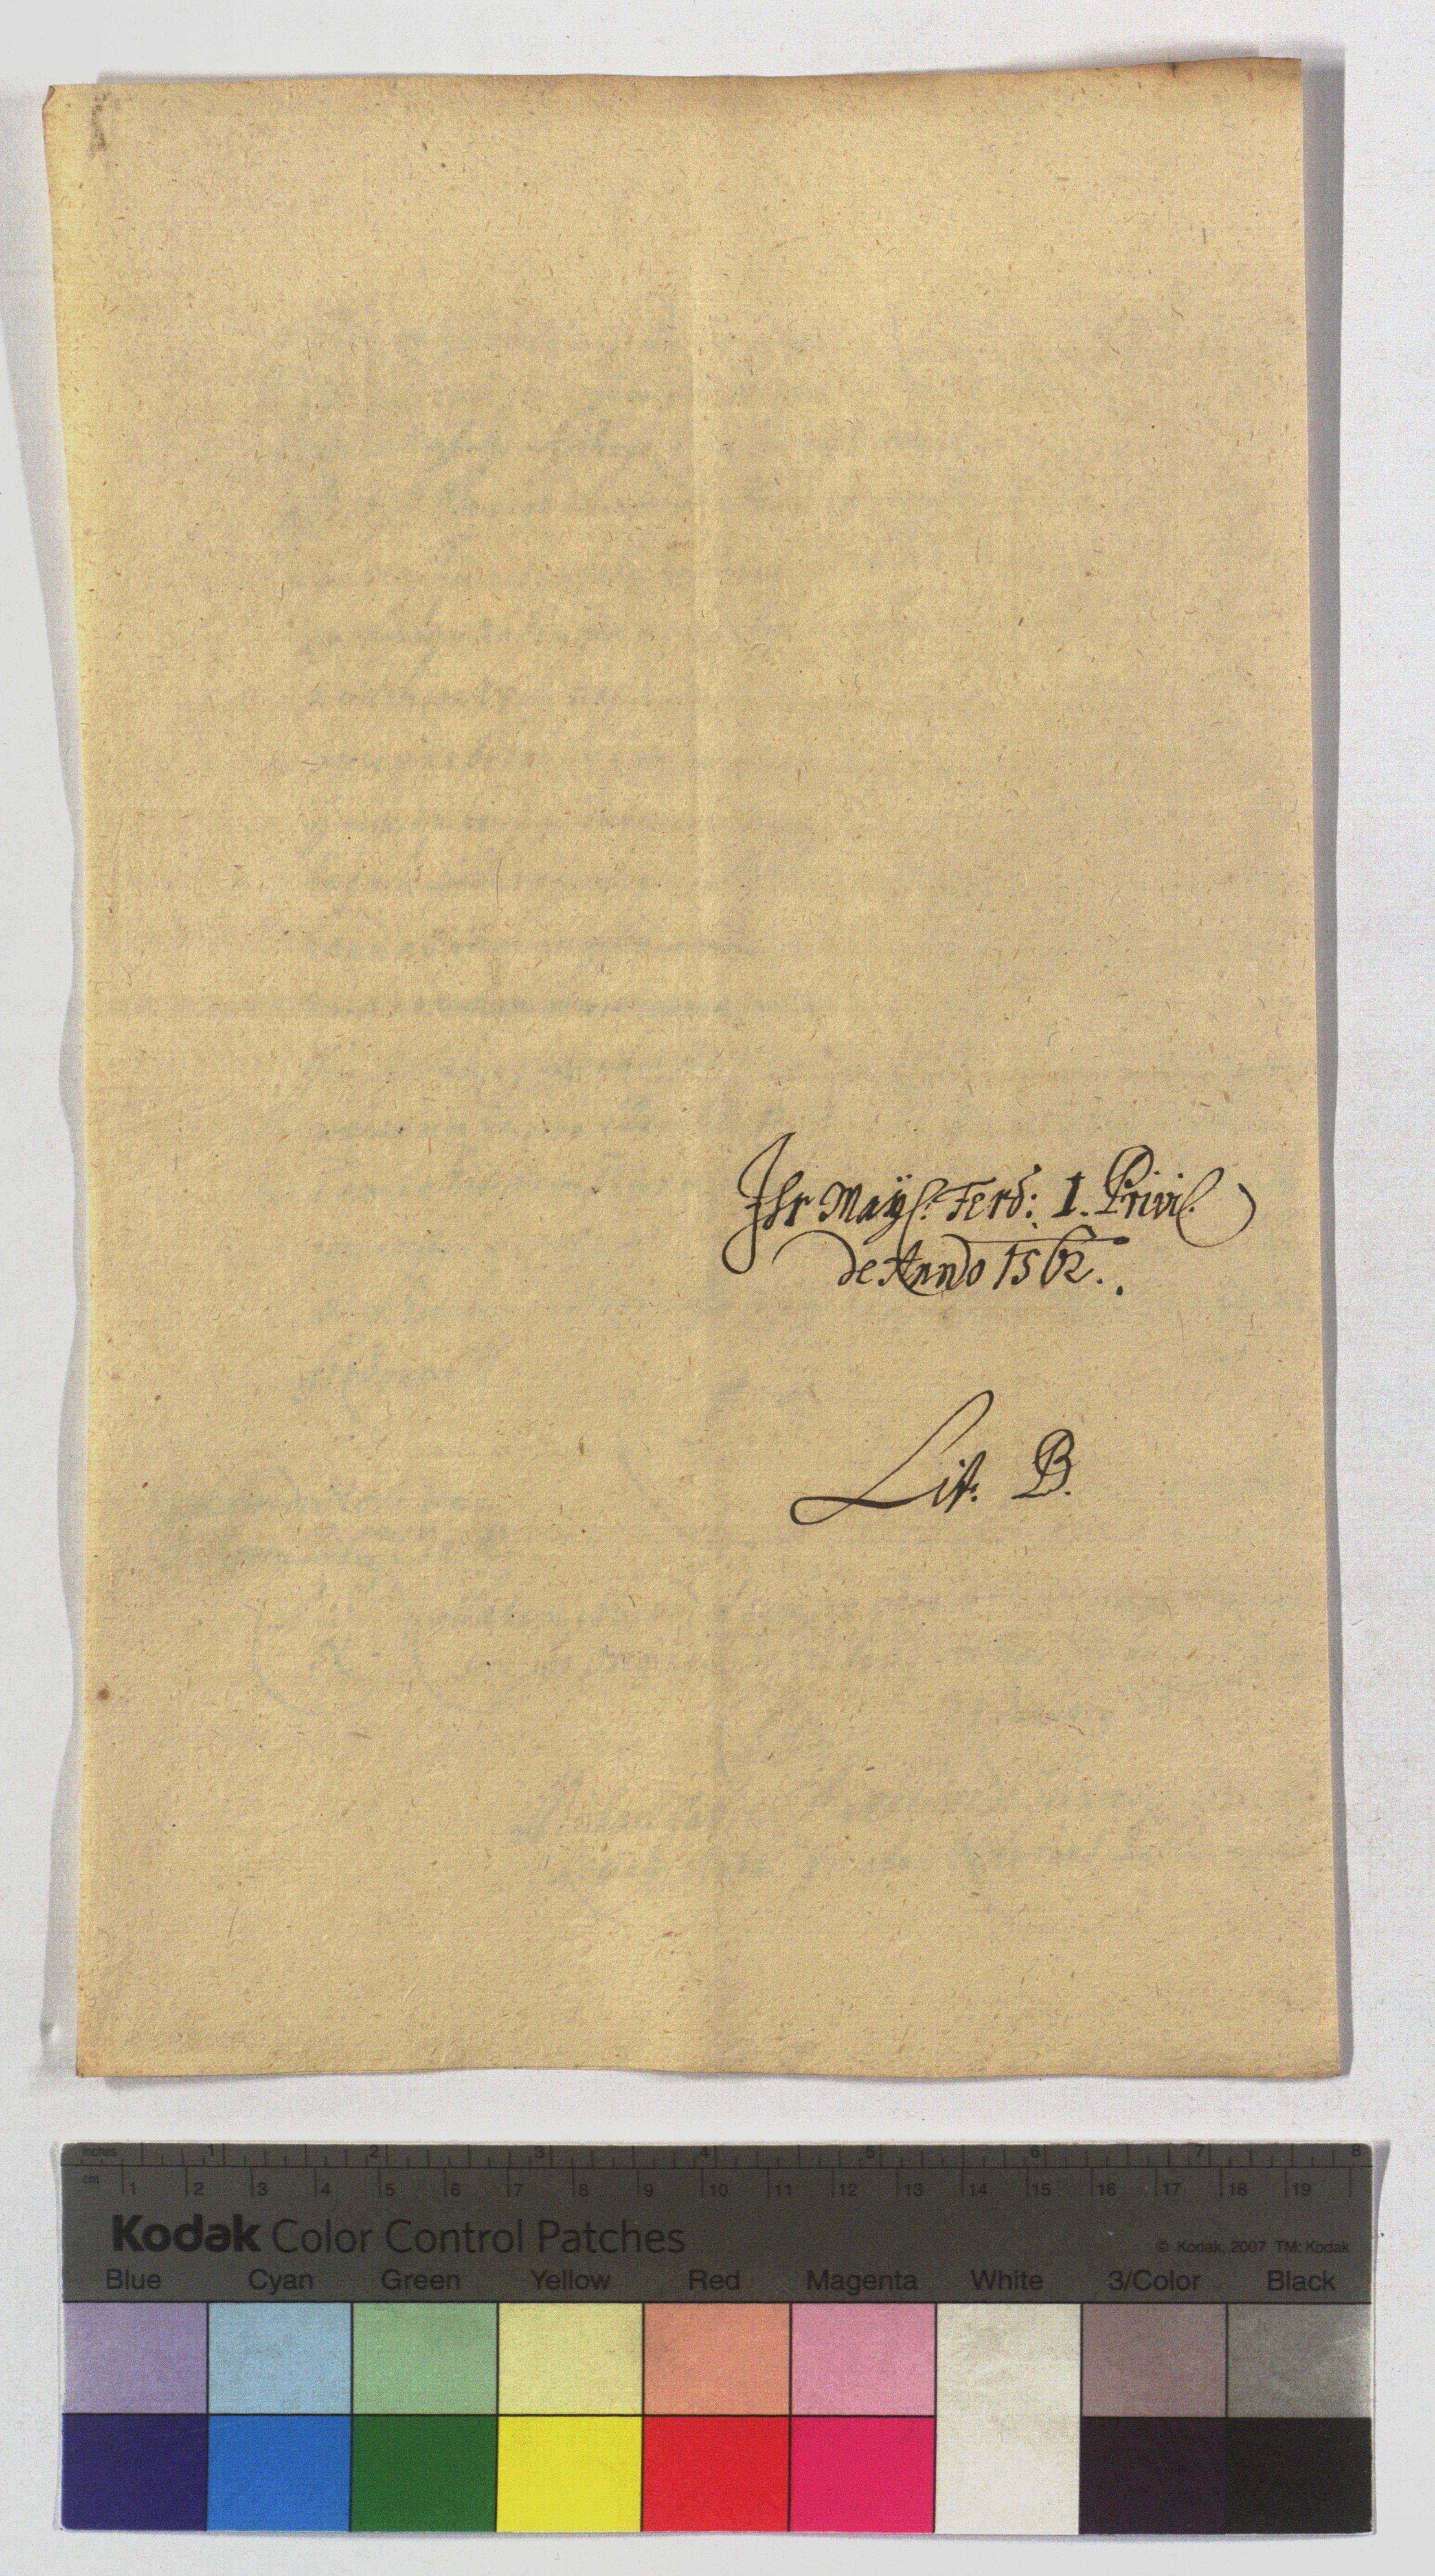 Ihr Mayß: Ferd: 1. Privil.
de Anno 1562.
Lit. B.
inches 1 2 3 4 5 6 7 8
cm 1 2 3 4 5 6 7 8 9 10 11 12 13 14 15 16 17 18 19
Kodak Color Control Patches
© Kodak, 2007 TM: Kodak
Blue Cyan Green Yellow Red Magenta White 3/Color Black